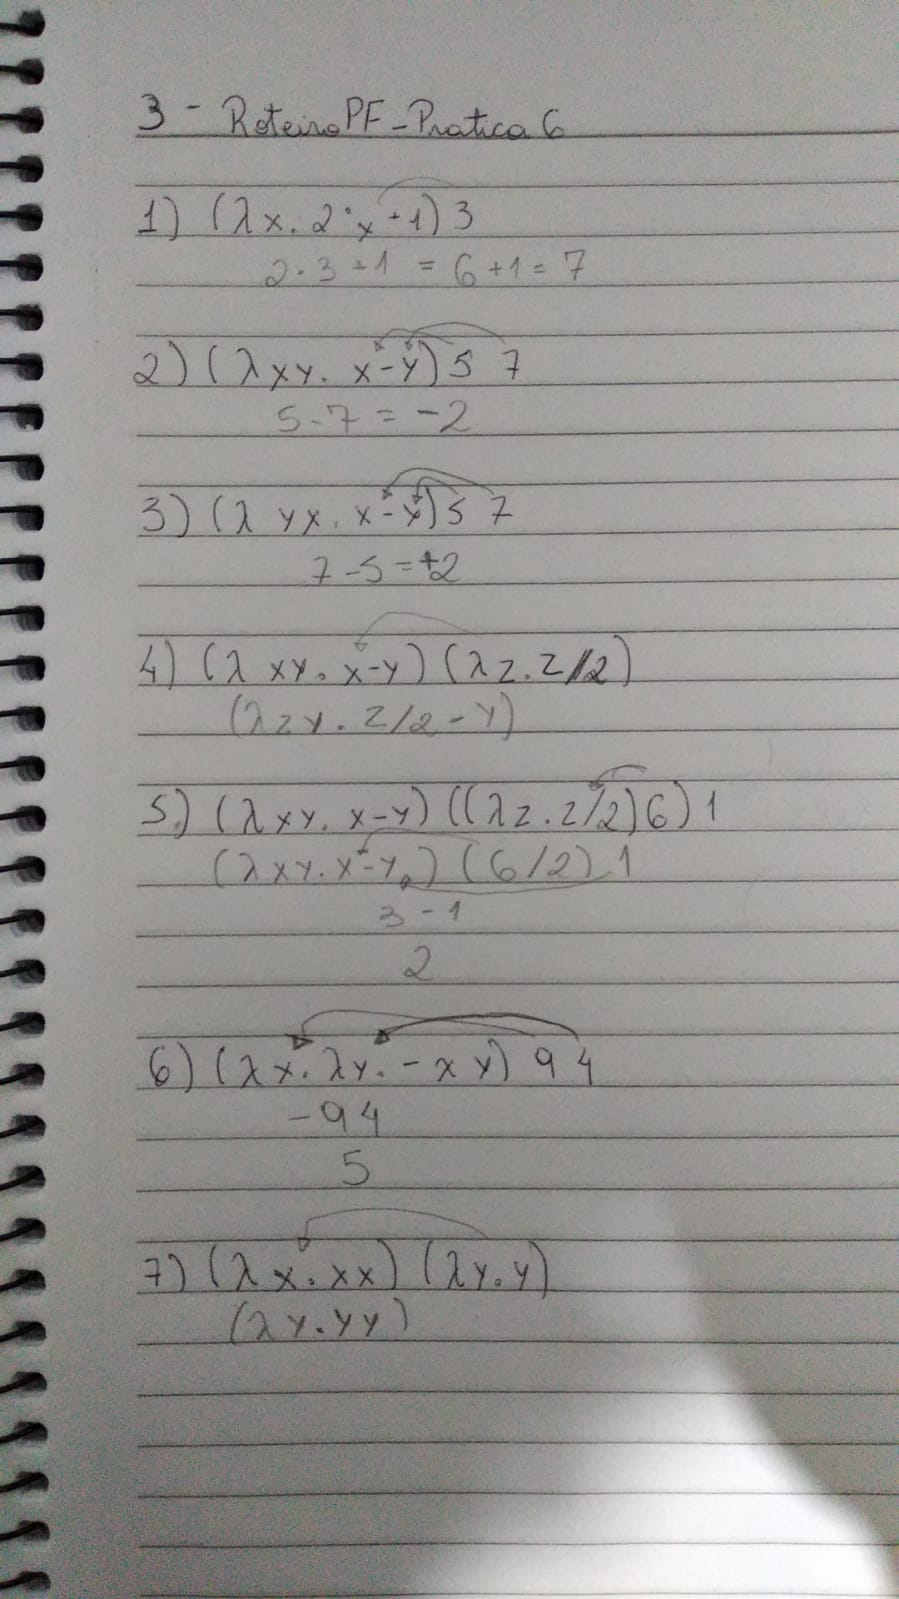 3 - Roteiro PF - Pratica 6
1) (λx. 2·x+1) 3
2·3+1 = 6+1 = 7
2) (λxy. x-y) 5 7
5-7 = -2
3) (λ yx. x-y) 5 7
7-5 = +2
4) (λ xy. x-y) (λz.z/2)
(λzy. z/2-y)
5.) (λxy. x-y) ((λz.z/2)6) 1
(λxy.x-y) (6/2) 1
3-1
2
6) (λx.λy.-xy) 9 4
-94
5
7) (λx.xx) (λy.y)
(λy.yy)